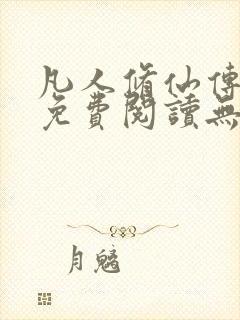 凡人修仙傳
免費閱讀無
月魑